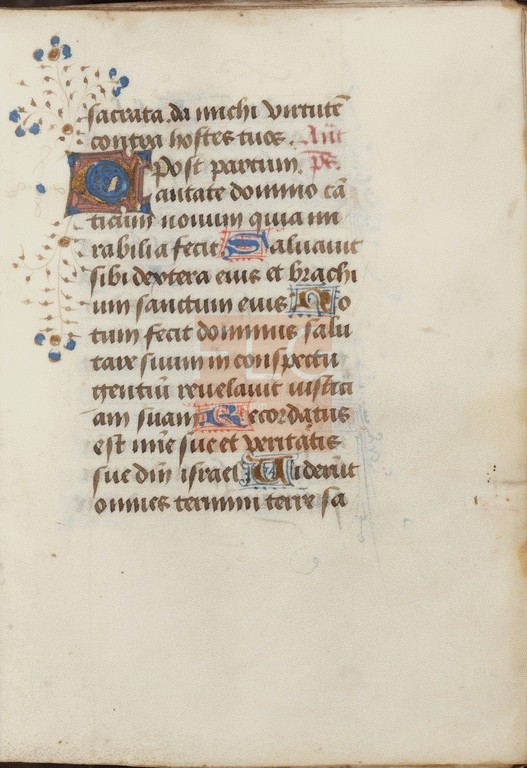 sacrata. da michi virtutē
contra hostes tuos. Añt
Post partum. ps.
Cantate domino cā
ticum novum quia mi
rabilia fecit Saluauit
sibi dextera eius et brachi
um sanctum eius No
tum fecit dominus salu
tare suum in conspectu
gentiū reuelauit iustici
am suam Recordatus
est mīe sue et veritatis
sue dm̄ israel. Viderūt
omnes termini terre sa